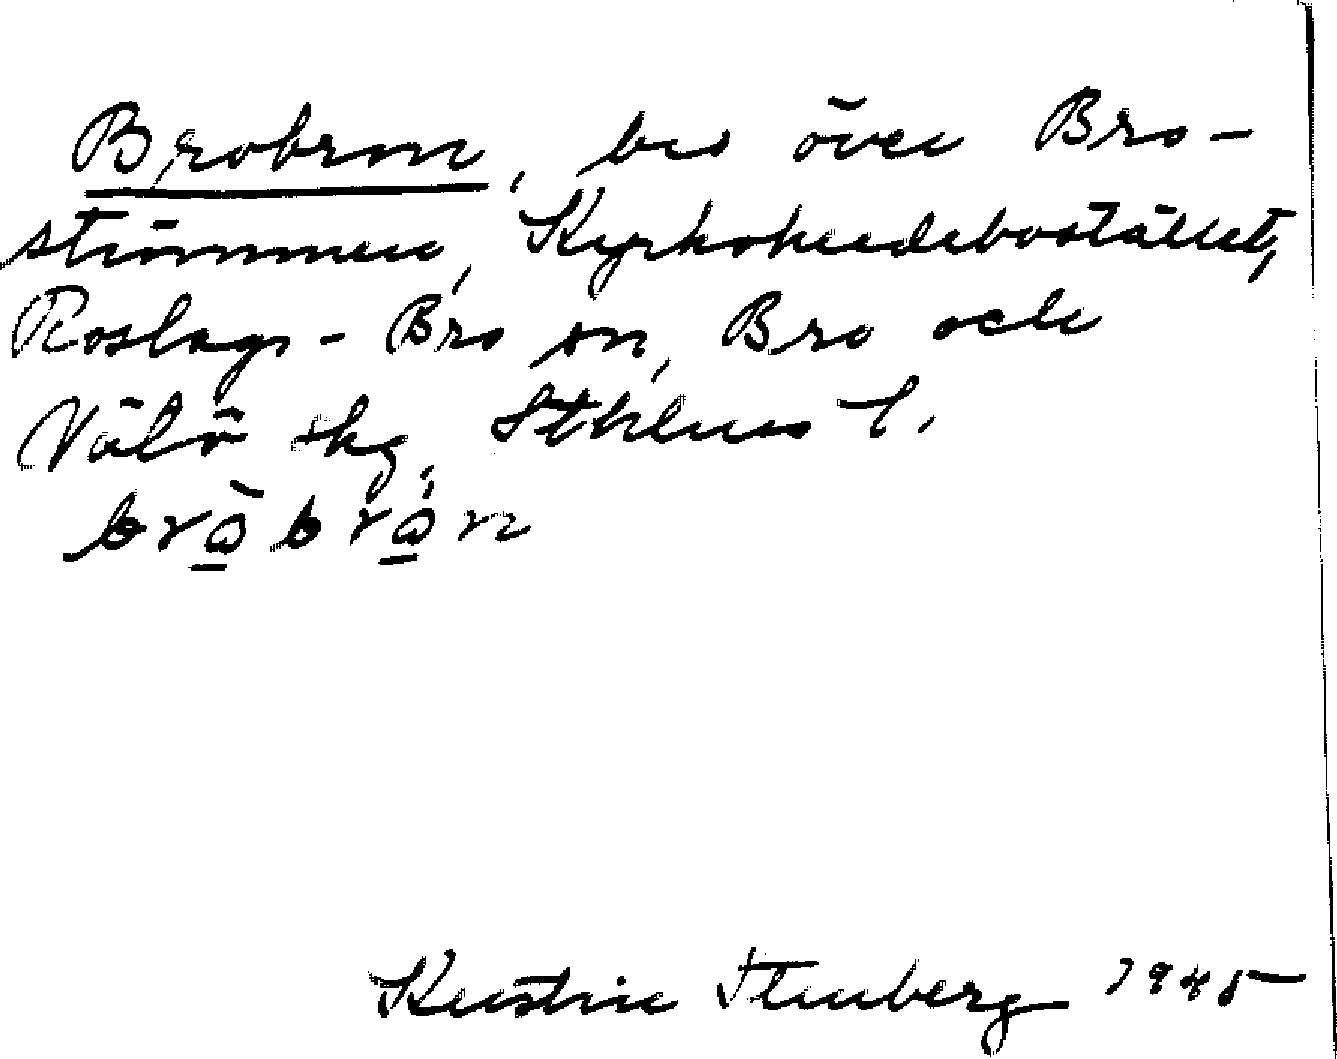 Brobron, bro över Bro-
strömmen, Kyrkoherdebostället,
Roslags-Bro sn, Bro och
Vätö skg, Sthlms l.
brò̲bró̲n
Kerstin Stenberg 1945